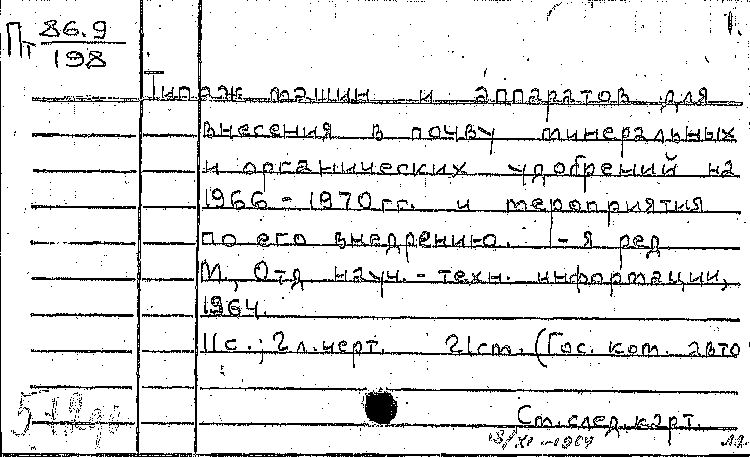 1.
Пт 86.9
198
Типаж машин и аппаратов для
внесения в почву минеральных
и органических удобрений на
1966 - 1970 гг. и мероприятия
по его внедрению. 1-я ред
М., Отд науч.-техн. информации,
1964.
11 с.; 2 л. черт. 21 cm. (Гос. ком. авто
Ст. след. карт.